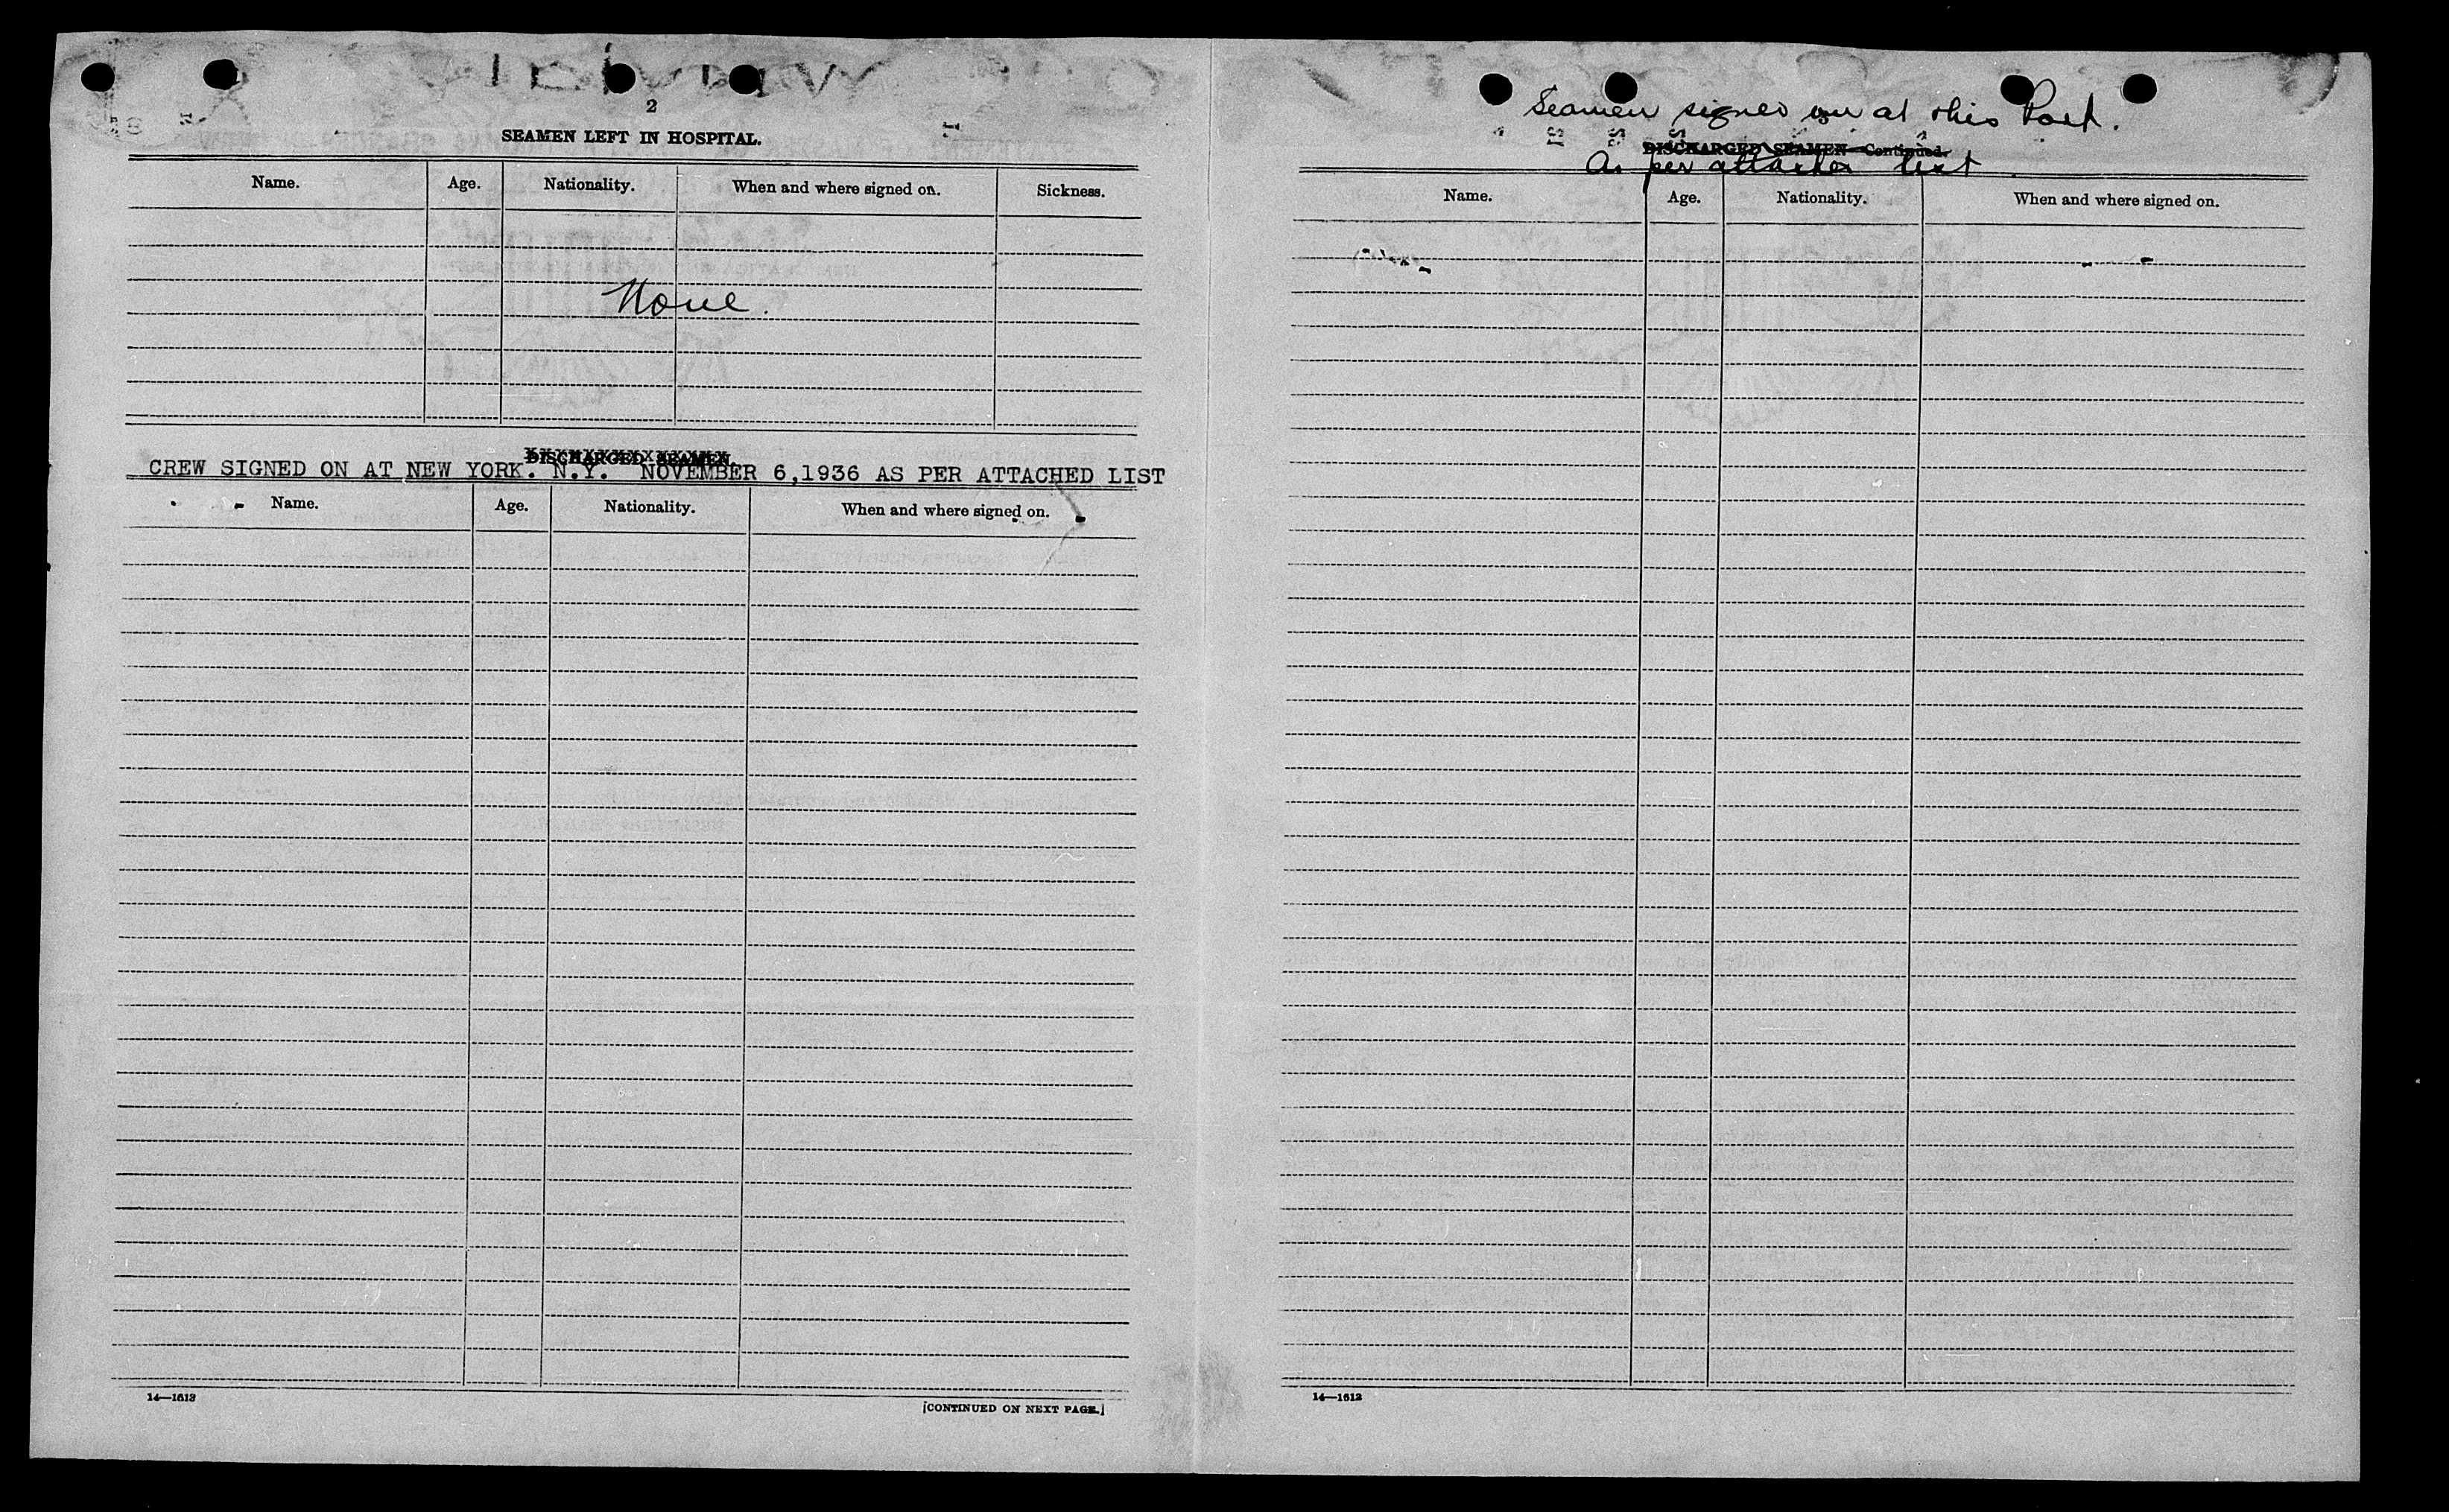 2
SEAMEN LEFT IN HOSPITAL.
Name. Age. Nationality. When and where signed on. Sickness.
None.
DISCHARGED SEAMEN.
CREW SIGNED ON AT NEW YORK. N.Y. NOVEMBER 6,1936 AS PER ATTACHED LIST
Name. Age. Nationality. When and where signed on.
14—1613
[CONTINUED ON NEXT PAGE.]
Seamen signed on at this Port.
DISCHARGED SEAMEN—Continued.
As per attached list
Name. Age. Nationality. When and where signed on.
14—1612